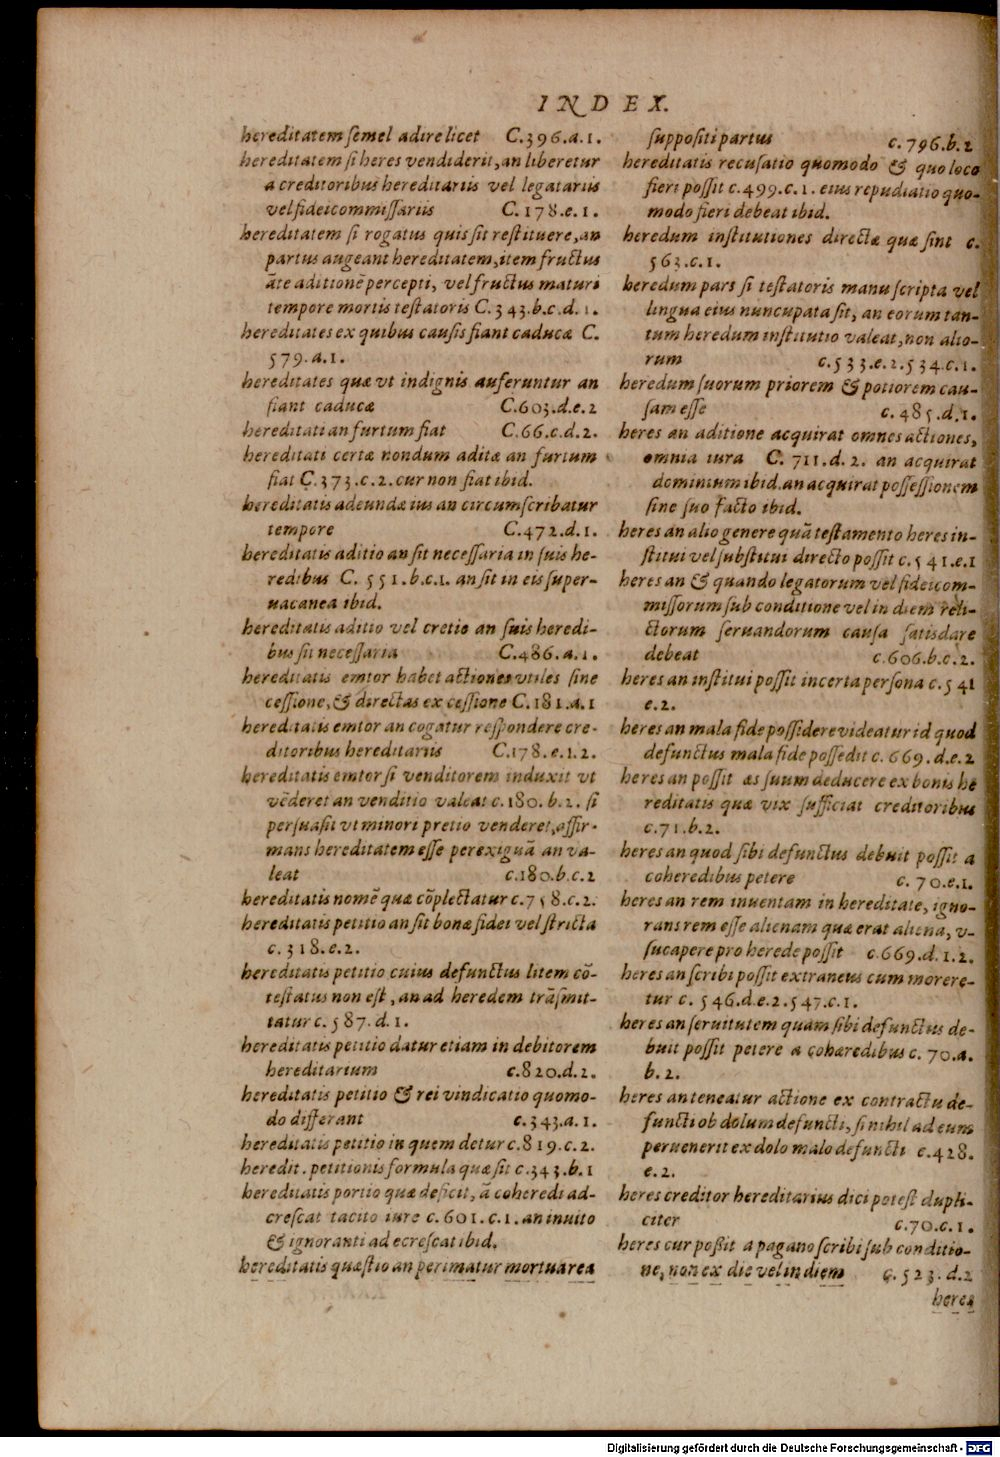 INDEX.
hereditatem ſemel adire licet C.396.a.1.
hereditatem ſi heres vendiderit, an liberetur
a creditoribus hereditariis vel legatariis
vel fideicommiſſariis C.178.e.1.
hereditatem ſi rogatus quis ſit reſtituere, an
partus augeant hereditatem, item fructus
āte aditionē percepti, vel fructus maturi
tempore mortis teſtatoris C.343.b.c.d.1.
hereditates ex quibus cauſis fiant caducæ C.
579.a.1.
hereditates quæ vt indignis auferuntur an
fiant caducæ C.603.d.e.2
hereditati an furtum fiat C.66.c.d.2.
hereditati certæ nondum aditæ an furtum
fiat C.373.c.2. cur non fiat ibid.
hereditatis adeundæ ius an circumſcribatur
tempore C.472.d.1.
hereditatis aditio an ſit neceſſaria in ſuis he-
redibus C. 551.b.c.1. an ſit in eis ſuper-
uacanea ibid.
hereditatis aditio vel cretio an ſuis heredi-
bus ſit neceſſaria C.486.a.1.
hereditatis emtor habet actiones vtiles ſine
ceſſione, & directas ex ceſſione C.181.a.1
hereditatis emtor an cogatur reſpondere cre-
ditoribus hereditariis C.178.e.1.2.
hereditatis emtor ſi venditorem induxit vt
vēderet an venditio valeat c.180.b.2. ſi
perſuaſit vt minori pretio venderet, affir-
mans hereditatem eſſe perexiguā an va-
leat c.180.b.c.2
hereditatis nomē quæ cōplectatur c.758.c.2.
hereditatis petitio an ſit bonæ fidei vel ſtricta
c.318.e.2.
hereditatis petitio cuius defunctus litem cō-
teſtatus non eſt, an ad heredem trāſmit-
tatur c.587.d.1.
hereditatis petitio datur etiam in debitorem
hereditarium c.820.d.2.
hereditatis petitio & rei vindicatio quomo-
do differant c.343.a.1.
hereditatis petitio in quem detur c.819.c.2.
heredit. petitionis formula quæ ſit c.343.b.1
hereditatis portio quæ deficit, ā coheredi ad-
creſcat tacito iure c.601.c.1. an inuito
& ignoranti adcreſcat ibid.
hereditatis quæſtio an perimatur mortua rea
ſuppoſiti partus c.796.b.2
hereditatis recuſatio quomodo & quo loco
fieri poſſit c.499.c.1. eius repudiatio quo-
modo fieri debeat ibid.
heredum inſtitutiones directæ quæ ſint c.
563.c.1.
heredum pars ſi teſtatoris manu ſcripta vel
lingua eius nuncupata ſit, an eorum tan-
tum heredum inſtitutio valeat, non alio-
rum c.533.e.2.534.c.1.
heredum ſuorum priorem & potiorem cau-
ſam eſſe c.485.d.1.
heres an aditione acquirat omnes actiones,
omnia iura C. 711.d.2. an acquirat
dominium ibid. an acquirat poſſeſſionem
ſine ſuo facto ibid.
heres an alio genere quā teſtamento heres in-
ſtitui vel ſubſtitui directo poſſit c.541.e.1
heres an & quando legatorum vel fideicom-
miſſorum ſub conditione vel in diem reli-
ctorum ſeruandorum cauſa ſatisdare
debeat c.606.b.c.2.
heres an inſtitui poſſit incerta perſona c.541
e.2.
heres an mala fide poſſidere videatur id quod
defunctus mala fide poſſedit c.669.d.e.2
heres an poſſit æs ſuum deducere ex bonis he
reditatis quæ vix ſufficiat creditoribus
c.71.b.2.
heres an quod ſibi defunctus debuit poſſit a
coheredibus petere c. 70.e.1.
heres an rem inuentam in hereditate, igno-
rans rem eſſe alienam quæ erat aliena, v-
ſucapere pro herede poſſit c.669.d.1.2.
heres an ſcribi poſſit extraneus cum morere-
tur c. 546.d.e.2.547.c.1.
heres an ſeruitutem quam ſibi defunctus de-
buit poſſit petere a cohæredibus c. 70.a.
b.2.
heres an teneatur actione ex contractu de-
functi ob dolum defuncti, ſi nihil ad eum
peruenerit ex dolo malo defuncti c.428.
e.2.
heres creditor hereditarius dici poteſt dupli-
citer c.70.c.1.
heres cur poßit a pagano ſcribi ſub conditio-
ne, non ex die vel in diem c.523.d.2
heres
Digitalisierung gefördert durch die Deutsche Forschungsgemeinschaft - DFG